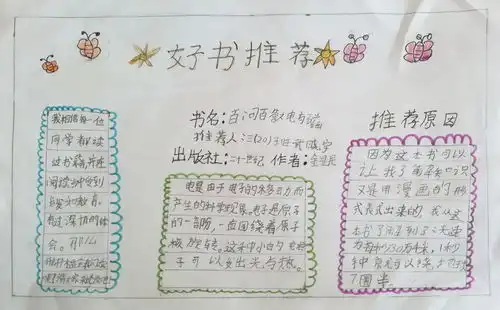 好书推荐
我相信每一位
同学都读
过书籍,并在
阅读中受到
启发和教育。
有过深切的体
会。那么
书名:百问百答电与磁
推荐人:三(20)班
出版社:二十一世纪 作者:
电是由于电子的来回力而
产生的科学现象。电子是原子
的一部分,一直围绕着原子
核旋转。这种小小的电粒
子可以发出光与热。
推荐原因
因为这本书可以
让我了解知识
又是用漫画的形
式表式出来的 我从这
本书了解到了光速
为每秒30万千米,1秒
钟 可以绕
7圈半